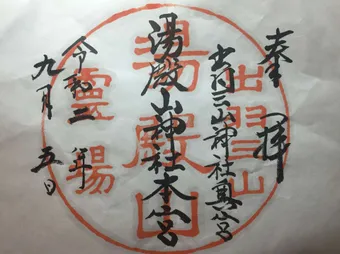 奉拝
出羽三山神社奥宮
湯殿山神社本宮
令和二年
九月五日
出羽山
湯殿山
霊場